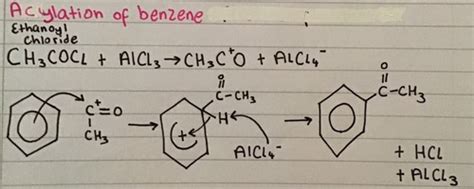 Acylation of benzene
Ethanoyl
Chloride
CH₃COCl + AlCl₃ → CH₃C⁺O + AlCl₄⁻
O
C-CH₃
C⁺=O
CH₃
H
+
AlCl₄⁻
O
C-CH₃
+ HCl
+ AlCl₃